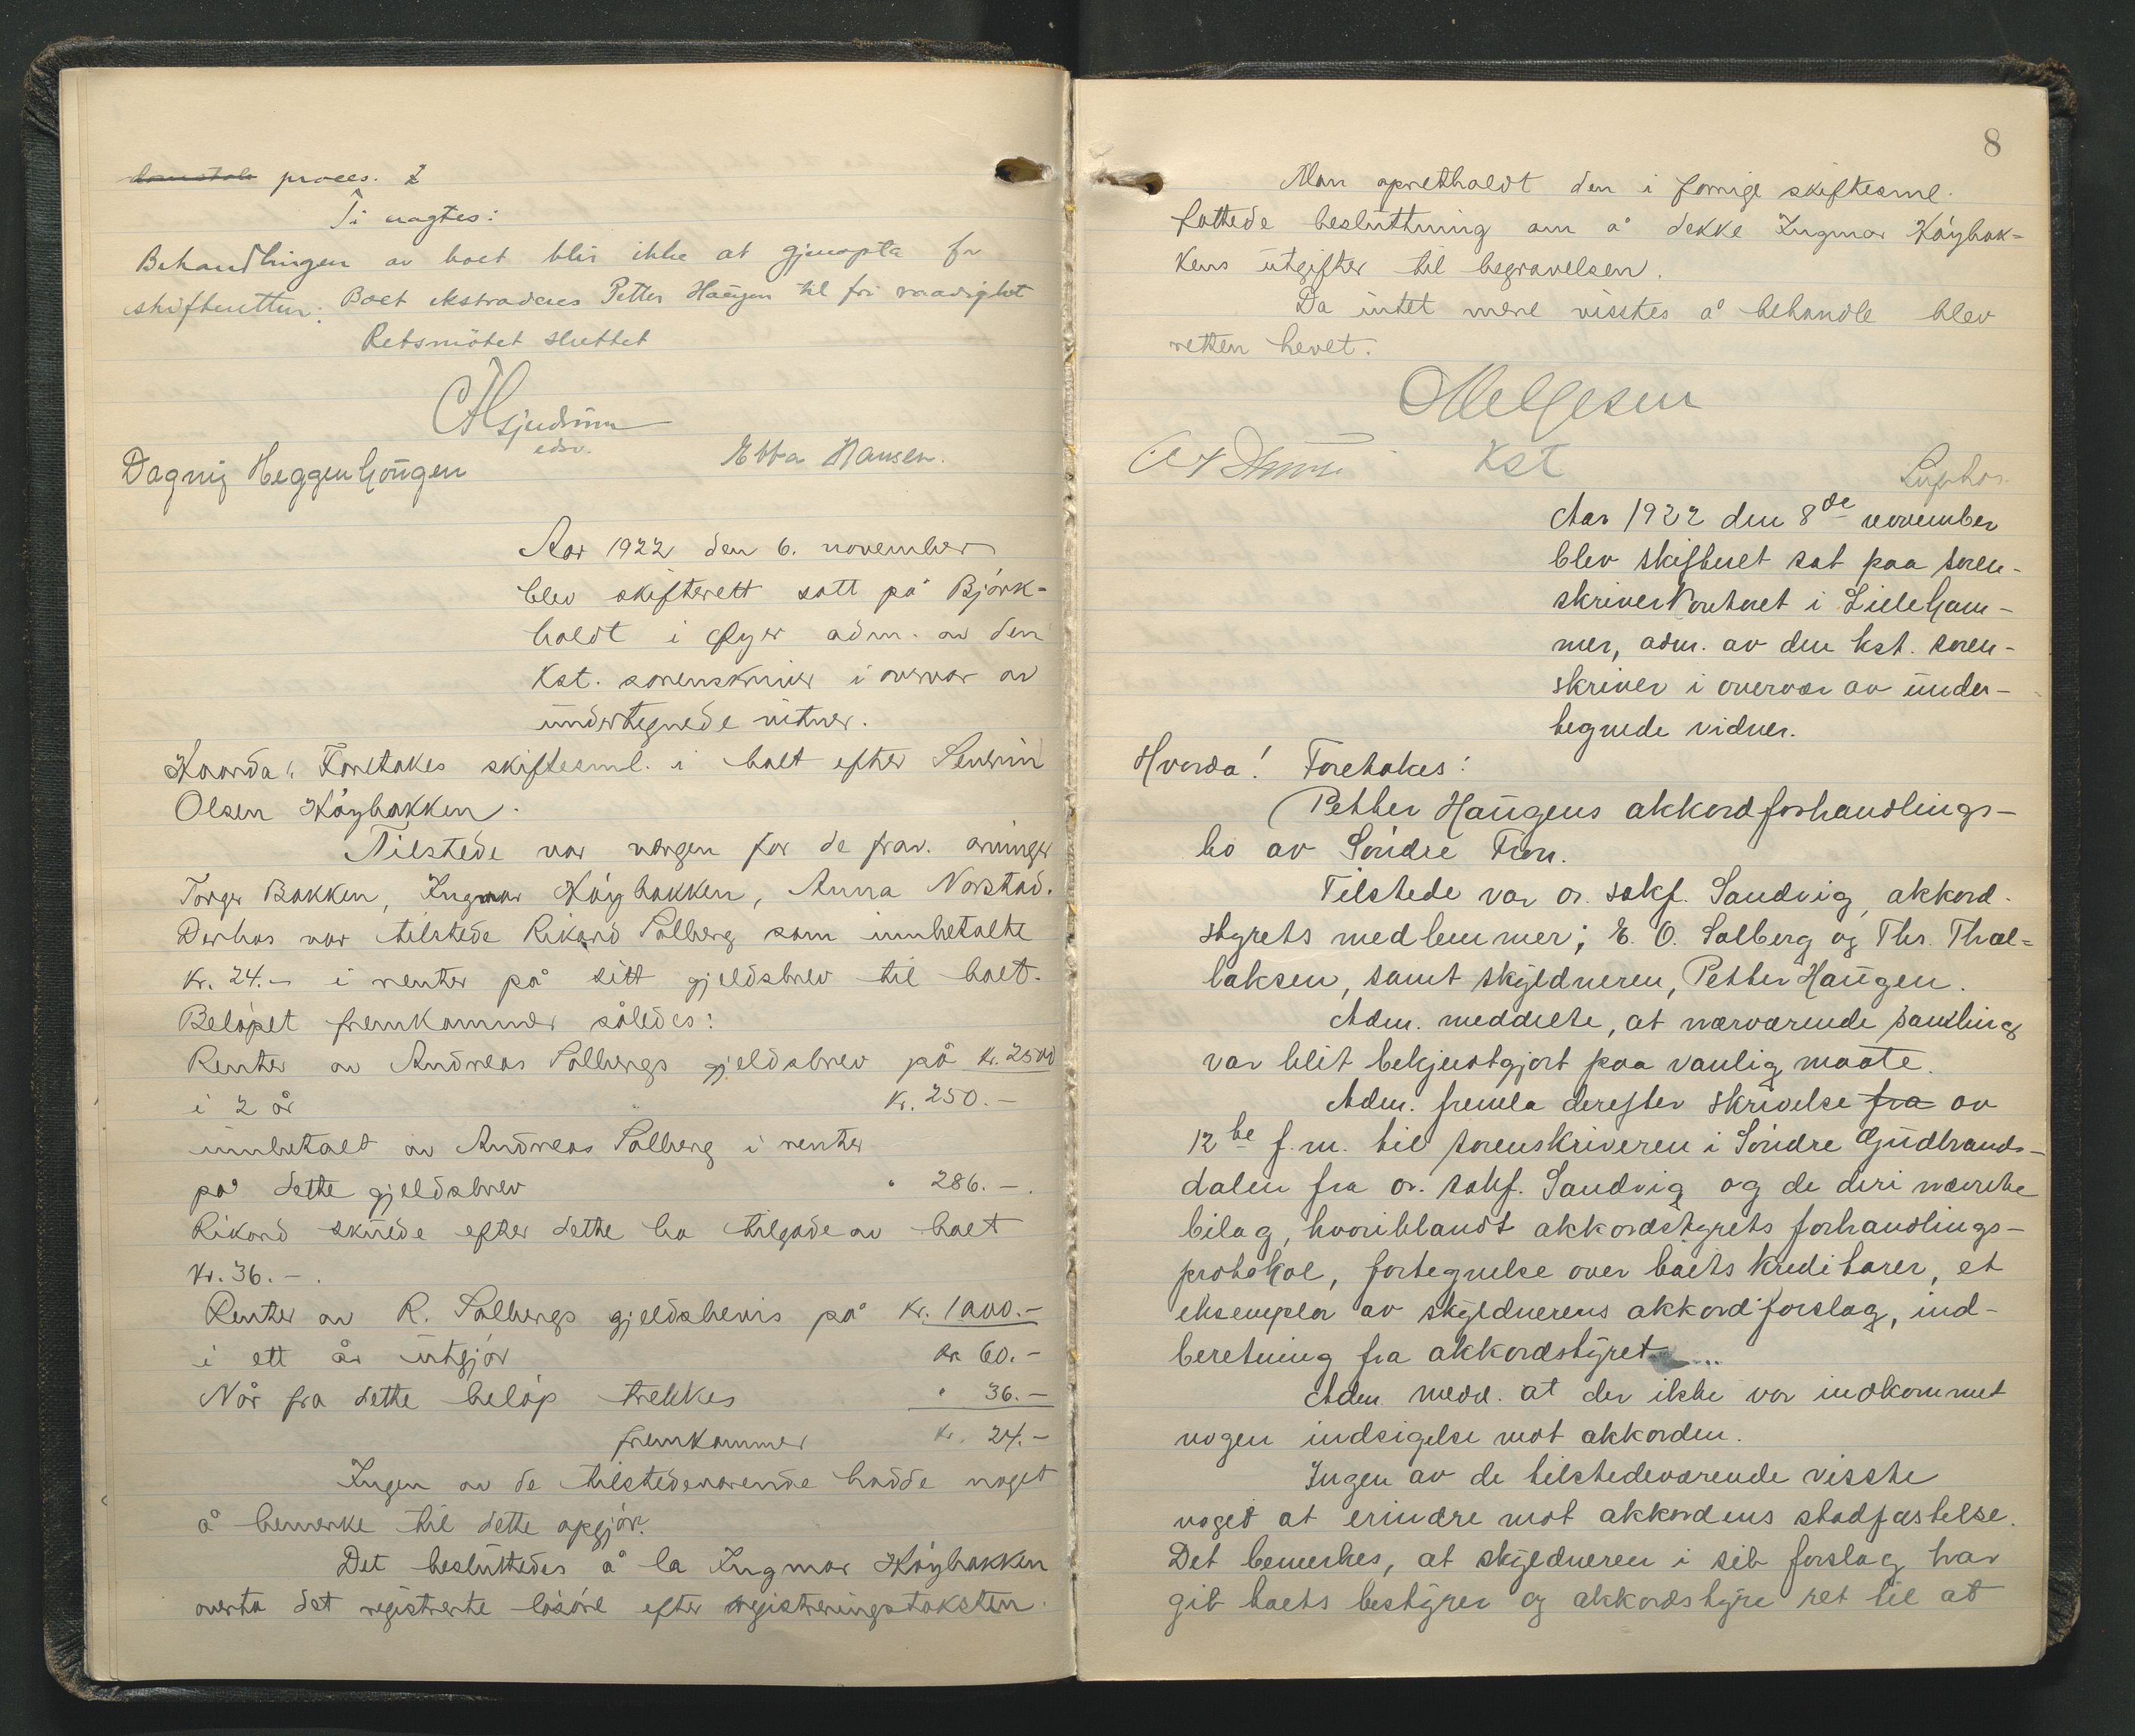 proces.
Ti vagtes:
Behandlingen av boet blir ikke at gjenopta for
skifteretten. Boet ekstraderes Petter Haugen til fri raadighet
Retsmötet sluttet
edsv.
Dagny Heggenhougen Ebba Hansen.
Aar 1922 den 6. november
blev skifterett satt på Björk-
holdt i Öyer adm. av den
Kst. sorenskriver i overvær av
undertegnede vitner.
Hvorda: Foretokes skiftesml. i boet efter Severin
Olsen Höybakken.
Tilstede var vergen for de frav. arvinger
Torger Bakken, Ingmar Höybakken, Anna Norstad.
Derhos var tilstede Rikard Solberg som innbetalte
Kr. 24.- i renter på sitt gjeldsbrev til boet.
Belöpet fremkommer således:
Renter av Andreas Solbergs gjeldsbrev på Kr. 2500
i 2 år Kr. 250.-
innbetalt av Andreas Solberg i renter
på dette gjeldsbrev " 286.-.
Rikard skulde efter dette ha tilgode av boet
Kr. 36.-.
Renter av R. Solbergs gjeldsbevis på Kr. 1000.-
i ett år utgjör Kr. 60.-
Når fra dette belöp trekkes " 36.-
fremkommer Kr. 24.-
Ingen av de tilstedeværende hadde noget
å bemerke til dette opgjör.
Det besluttedes å la Ingmar Höybakken
overta det registrerte lösöre efter registreringstaksten.
8
Man opretholdt den i forrige skiftesml.
fattede besluttning om å dekke Ingmar Höybak-
kens utgifter til begravelsen.
Da intet mere visstes å behandle blev
retten hevet.
Kst
Aar 1922 den 8de november
blev skifteret sat paa soren-
skriverkontoret i Lilleham-
mer, adm. av den kst. soren-
skriver i overvær av under-
tegnede vidner.
Hvorda! Foretokes:
Petter Haugens akkordforhandlings-
bo av Söndre Fron.
Tilstede var or. sakf. Sandvig, akkord-
styrets medlemmer; E. O. Solberg og Ths. Thal-
laksen, samt skyldneren, Petter Haugen.
Adm. meddelte, at nærværende samling
var blit bekjentgjort paa vanlig maate.
Adm. fremla derefter skrivelse fra av
12te f.m. til sorenskriveren i Söndre Gudbrands-
dalen fra or. sakf. Sandvig og de deri nævnte
bilag, hvoriblandt akkordstyrets forhandlings-
protokol, fortegnelse over boets kreditorer, et
eksemplar av skyldnerens akkordforslag, ind-
beretning fra akkordstyret
Adm. medd. at der ikke var indkommet
nogen indsigelse mot akkorden.
Ingen av de tilstedeværende visste
noget at erindre mot akkordens stadfæstelse.
Det bemerkes, at skyldneren i sit forslag har
git boets bestyrer og akkordstyre ret til at